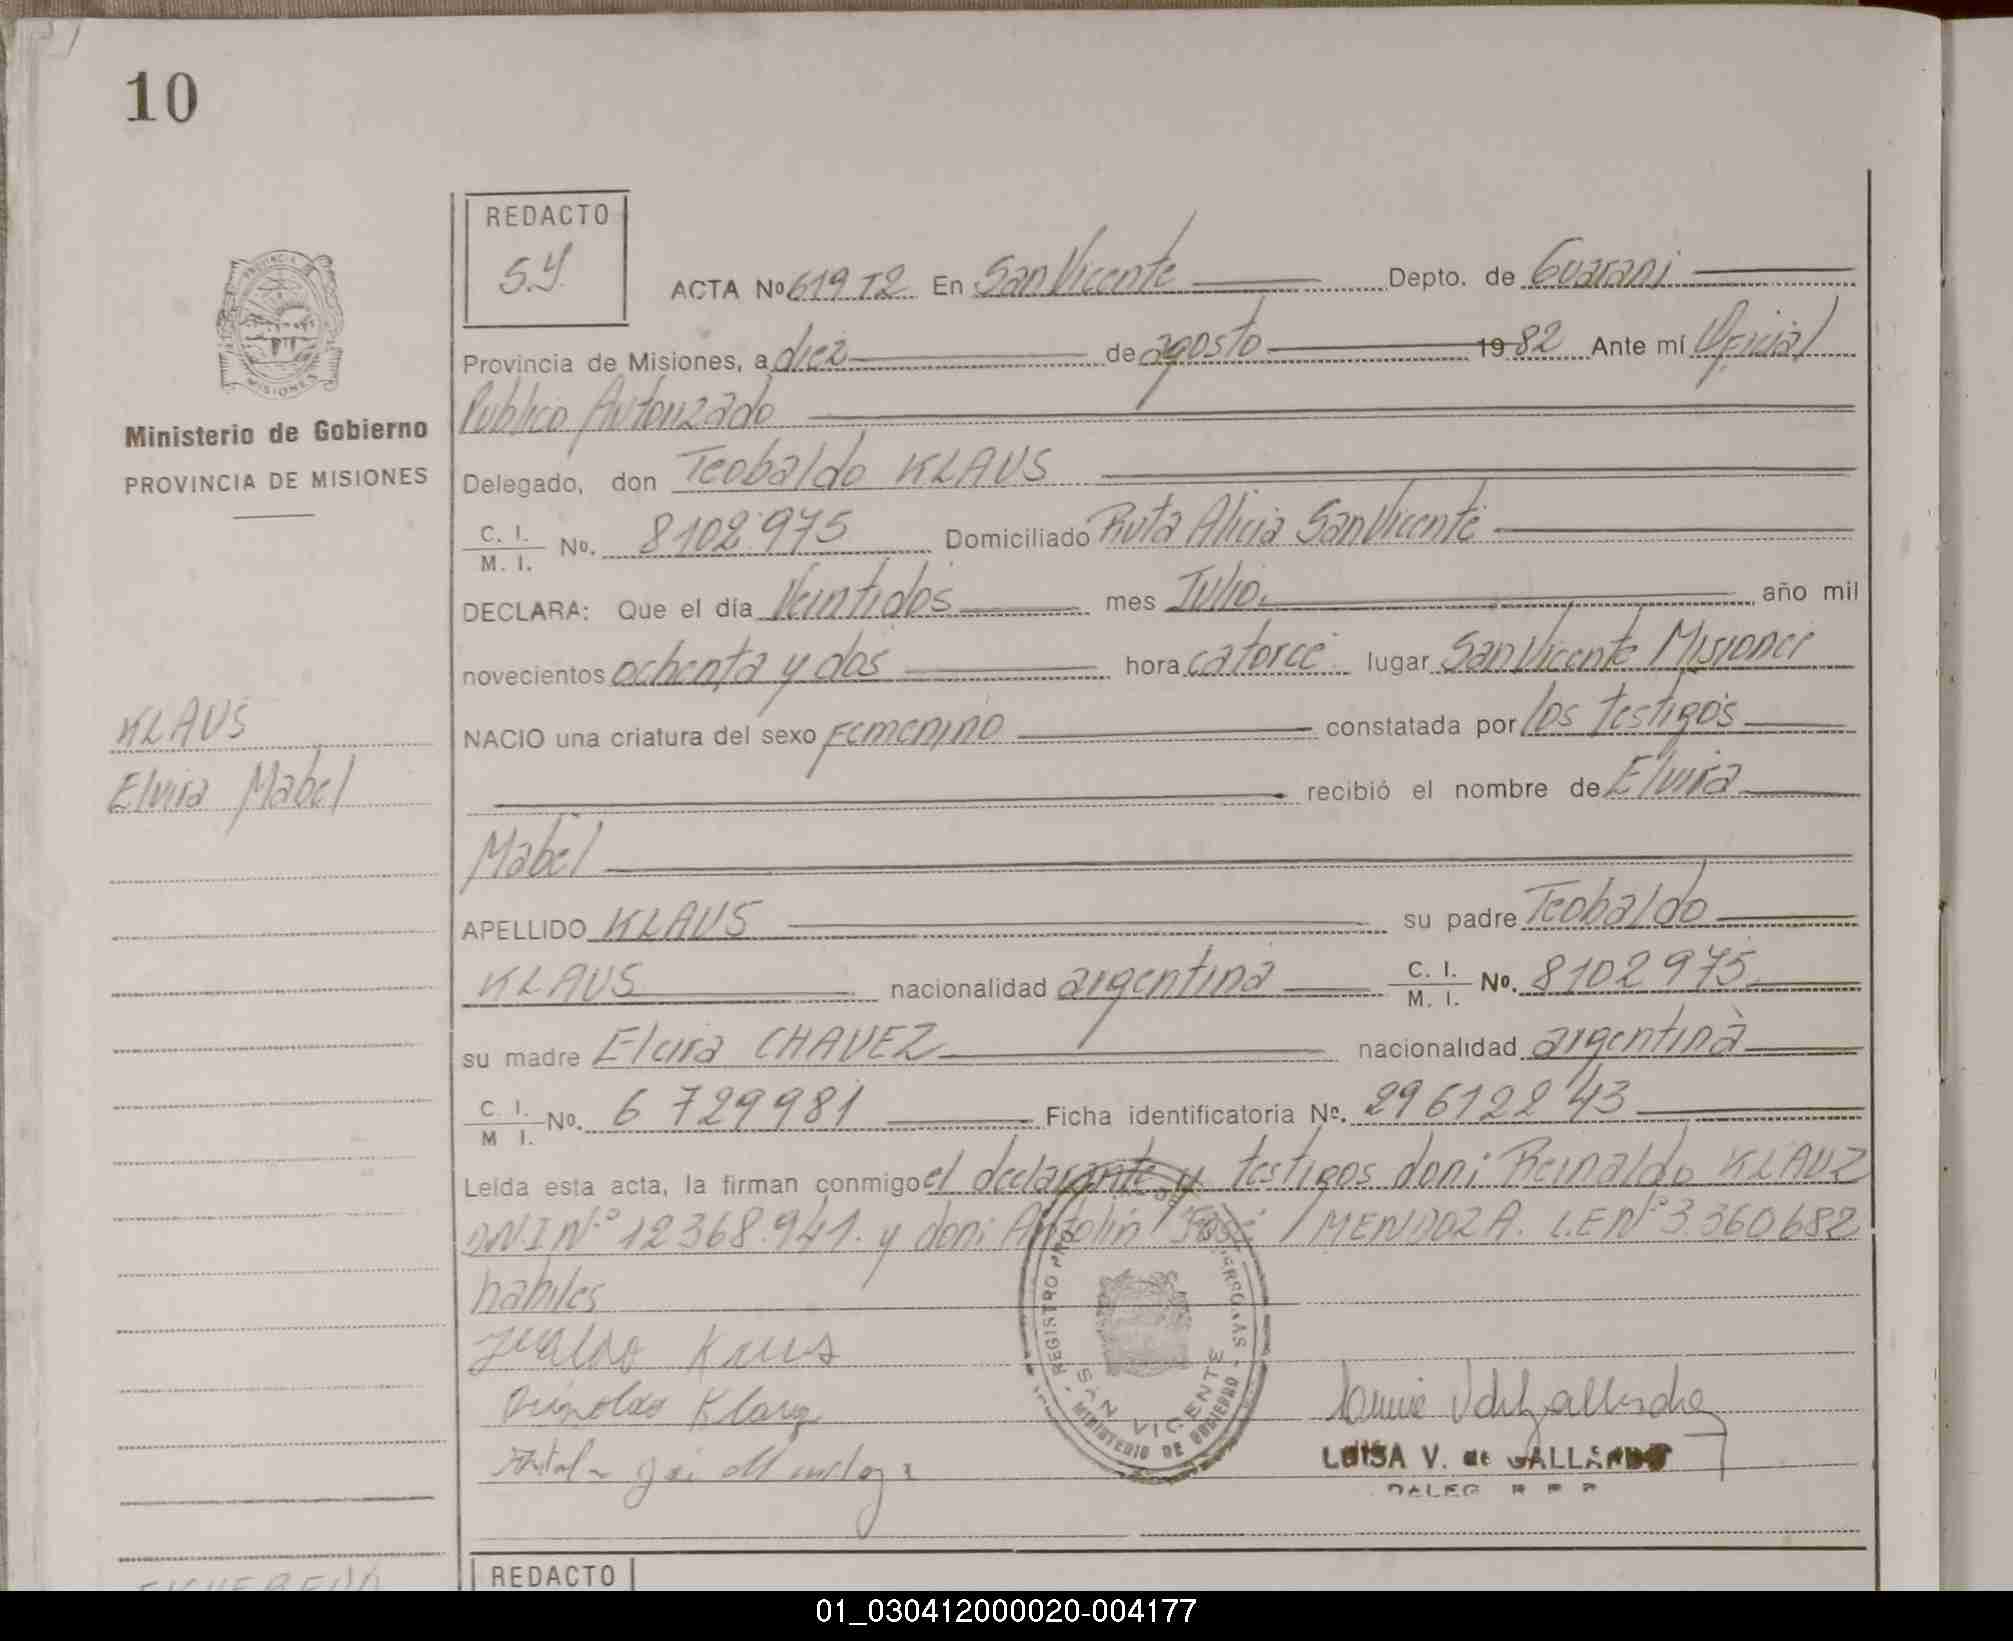 10
REDACTO
S.Y.
ACTA No 619 T2 En San Vicente Depto. de Guarani
Provincia de Misiones, a diez de agosto 1982 Ante mí Oficial
Publico Autorizado
Ministerio de Gobierno
PROVINCIA DE MISIONES
Delegado, don Teobaldo KLAUS
C. I. / M. I. No. 8102.975 Domiciliado Ruta Alicia San Vicente
DECLARA: Que el día Veintidos mes Julio. año mil
novecientos ochenta y dos hora catorce lugar San Vicente Misiones
KLAUS
Elvira Mabel
NACIO una criatura del sexo Femenino constatada por los testigos
recibió el nombre de Elvira
Mabel
APELLIDO KLAUS su padre Teobaldo
KLAUS nacionalidad argentina C. I. / M. I. No. 8102975
su madre Elvira CHAVEZ nacionalidad argentina
C. I. / M I. No. 6 729981 Ficha identificatoria No. 29612243
Leída esta acta, la firman conmigo el declarante y testigos don: Reinaldo KLAUZ
DNI Nº 12368.941. y don: Antolin José MENDOZA. L.E Nº 3.360682
habiles
Reinoldo Klauz
REGISTRO PERSONAS
SAN VICENTE
MINISTERIO DE GOBIERNO
LUISA V. de GALLARDO
REDACTO
01_030412000020-004177